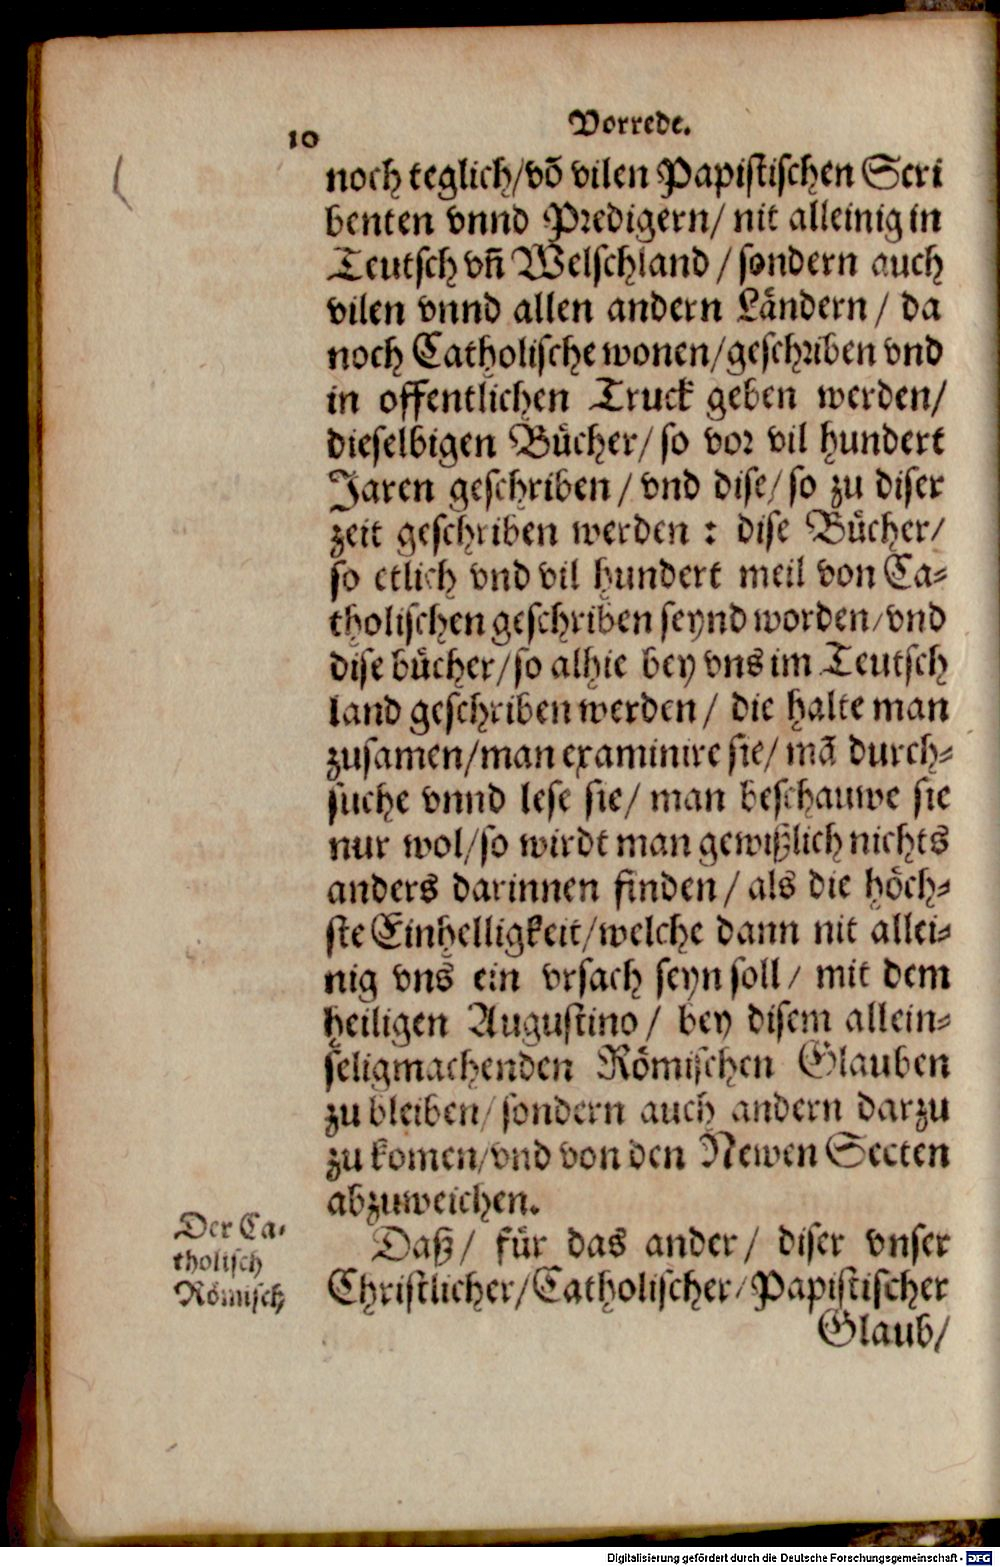 10
Vorrede.
noch teglich/ võ vilen Papistischen Scri
benten vnnd Predigern/ nit alleinig in
Teutsch vñ Welschland / sondern auch
vilen vnnd allen andern Ländern / da
noch Catholische wonen/ geschriben vnd
in offentlichen Truck geben werden/
dieselbigen Bücher/ so vor vil hundert
Jaren geschriben / vnd dise/ so zu diser
zeit geschriben werden : dise Bücher/
so etlich vnd vil hundert meil von Ca-
tholischen geschriben seynd worden/ vnd
dise bücher/ so alhie bey vns im Teutsch
land geschriben werden / die halte man
zusamen/ man examinire sie/ mã durch-
suche vnnd lese sie/ man beschauwe sie
nur wol/ so wirdt man gewißlich nichts
anders darinnen finden / als die höch-
ste Einhelligkeit/ welche dann nit allei-
nig vns ein vrsach seyn soll / mit dem
heiligen Augustino / bey disem allein-
seligmachenden Römischen Glauben
zu bleiben/ sondern auch andern darzu
zu komen/ vnd von den Newen Secten
abzuweichen.
Der Ca-
tholisch
Römisch
Daß/ für das ander/ diser vnser
Christlicher/ Catholischer/ Papistischer
Glaub/
Digitalisierung gefördert durch die Deutsche Forschungsgemeinschaft - DFG